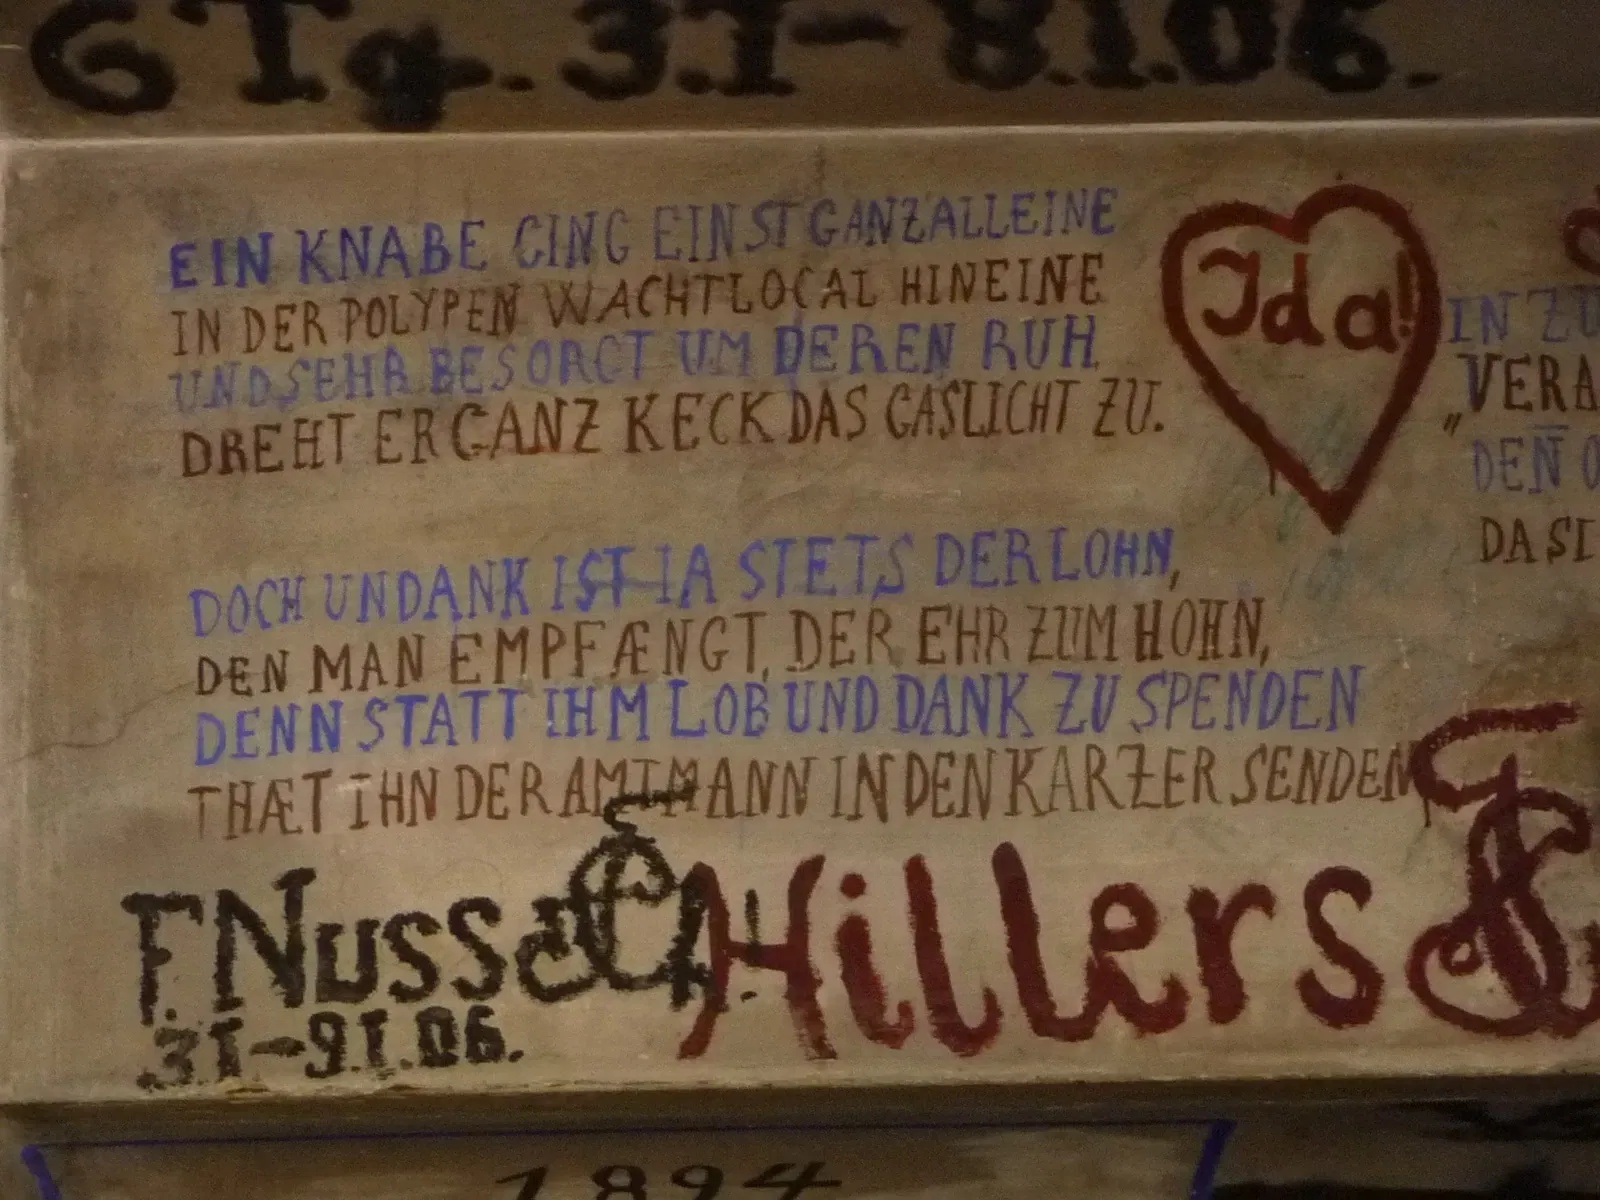 6 Tg. 3.I-8.I.06.
EIN KNABE GING EINST GANZ ALLEINE
IN DER POLYPEN WACHTLOCAL HINEINE
UND SEHR BESORGT UM DEREN RUH
DREHT ER GANZ KECK DAS GASLICHT ZU.
DOCH UNDANK IST IA STETS DER LOHN,
DEN MAN EMPFÆNGT, DER EHR ZUM HOHN,
DENN STATT IHM LOB UND DANK ZU SPENDEN
THÆT IHN DER AMTMANN IN DEN KARZER SENDEN
Ida!
IN ZU
„VERA
DEN̄ O
DA SE
F. Nuss
3.I-9.I.06.
Hillers
1894